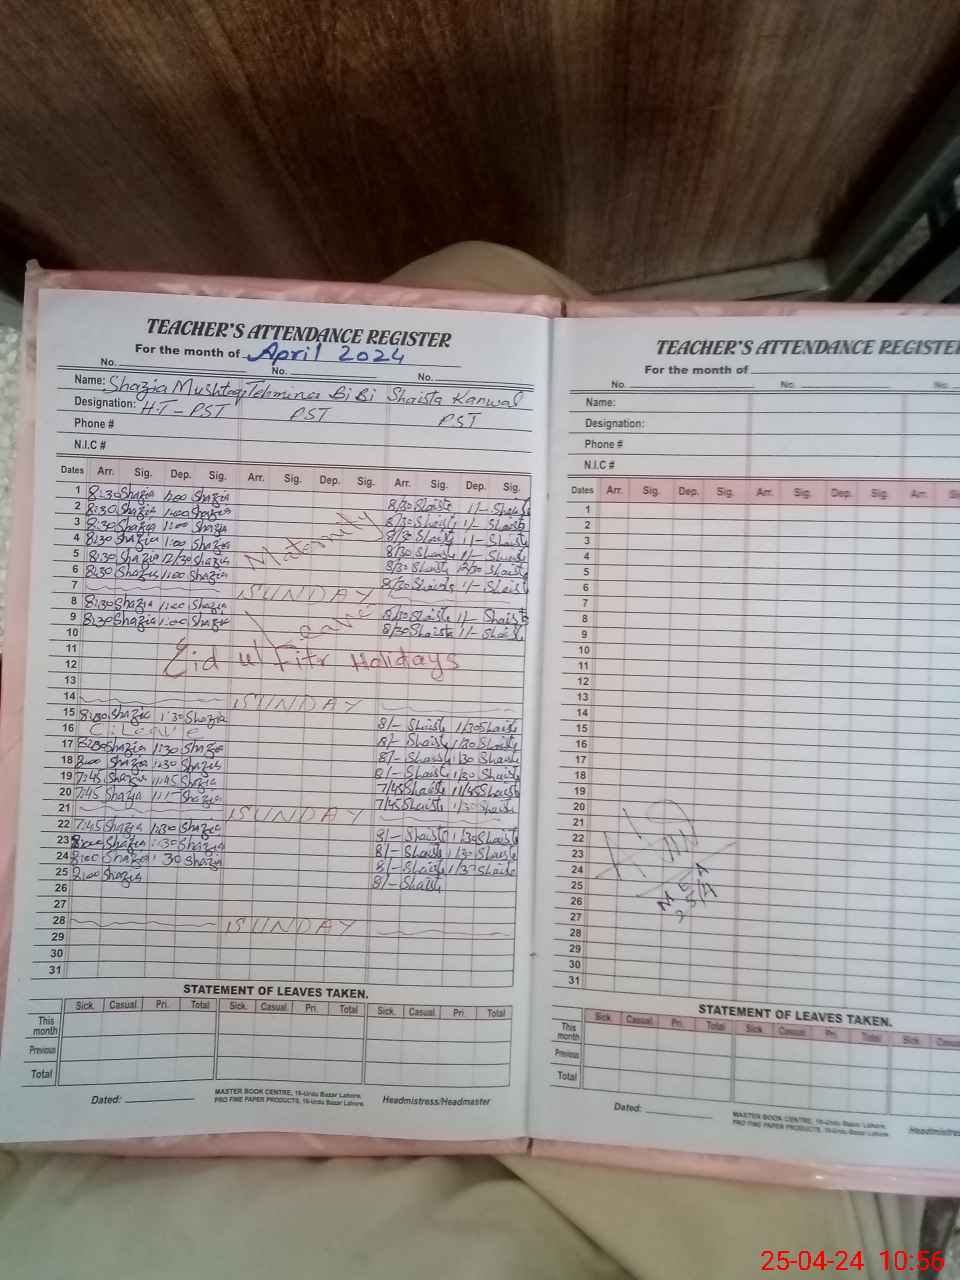 TEACHER'S ATTENDANCE REGISTER
For the month of April 2024
No. No. No.
Name: Shazia Mushtaq Tehmina Bi Bi Shaista Kanwal
Designation: H.T - PST PST PST
Phone #
N.I.C #
Dates Arr. Sig. Dep. Sig. Arr. Sig. Dep. Sig. Arr. Sig. Dep. Sig.
1 8:30 Shazia 1:00 Shazia 8/30 Shaista 1/- Shaista
2 8:30 Shazia 1:00 Shazia 8/30 Shaista 1/- Shaista
3 8:30 Shazia 1:00 Shazia 8/30 Shaista 1/- Shaista
4 8:30 Shazia 1:00 Shazia 8/30 Shaista 1/- Shaista
5 8:30 Shazia 12/30 Shazia 8/30 Shaista 12/30 Shaista
6 8:30 Shazia 1:00 Shazia 8/30 Shaista 1/- Shaista
Maternity
7 SUNDAY
8 8:30 Shazia 1:00 Shazia 8/30 Shaista 1/- Shaista
9 8:30 Shazia 1:00 Shazia 8/30 Shaista 1/- Shaista
Leave
10
11 Eid ul Fitr Holidays
12
13
14 SUNDAY
15 8:00 Shazia 1:30 Shazia 8/- Shaista 1/30 Shaista
16 C. Leave 8/- Shaista 1/30 Shaista
17 Shazia 1:30 Shazia 8/- Shaista 1/30 Shaista
18 8:00 Shazia 1:30 Shazia 8/- Shaista 1/30 Shaista
19 7:45 Shazia 11:45 Shazia 7/45 Shaista 11/45 Shaista
20 7:45 Shazia Shazia 7/45 Shaista 1/30 Shaista
21 SUNDAY
22 7:45 Shazia 1:30 Shazia 8/- Shaista 1/30 Shaista
23 8:00 Shazia 1:30 Shazia 8/- Shaista 1/30 Shaista
24 8:00 Shazia 1:30 Shazia 8/- Shaista 1/30 Shaista
25 8:00 Shazia 8/- Shaista
26
27
28 SUNDAY
29
30
31
STATEMENT OF LEAVES TAKEN.
Sick. Casual. Pri. Total Sick. Casual. Pri. Total Sick. Casual. Pri. Total
This month
Previous
Total
Dated: MASTER BOOK CENTRE, 16-Urdu Bazar Lahore. Headmistress/Headmaster
PRO FINE PAPER PRODUCTS, 16-Urdu Bazar Lahore.
TEACHER'S ATTENDANCE REGISTER
For the month of
No. No. No.
Name:
Designation:
Phone #
N.I.C #
Dates Arr. Sig. Dep. Sig. Arr. Sig. Dep. Sig. Arr.
1
2
3
4
5
6
7
8
9
10
11
12
13
14
15
16
17
18
19
20
21
22
23
24
25
26
27
28
29
30
31
MEA
25/4
STATEMENT OF LEAVES TAKEN.
Sick. Casual. Pri. Total Sick. Casual. Pri. Total Sick.
This month
Previous
Total
Dated: MASTER BOOK CENTRE, 16-Urdu Bazar Lahore.
PRO FINE PAPER PRODUCTS, 16-Urdu Bazar Lahore.
25-04-24 10:56